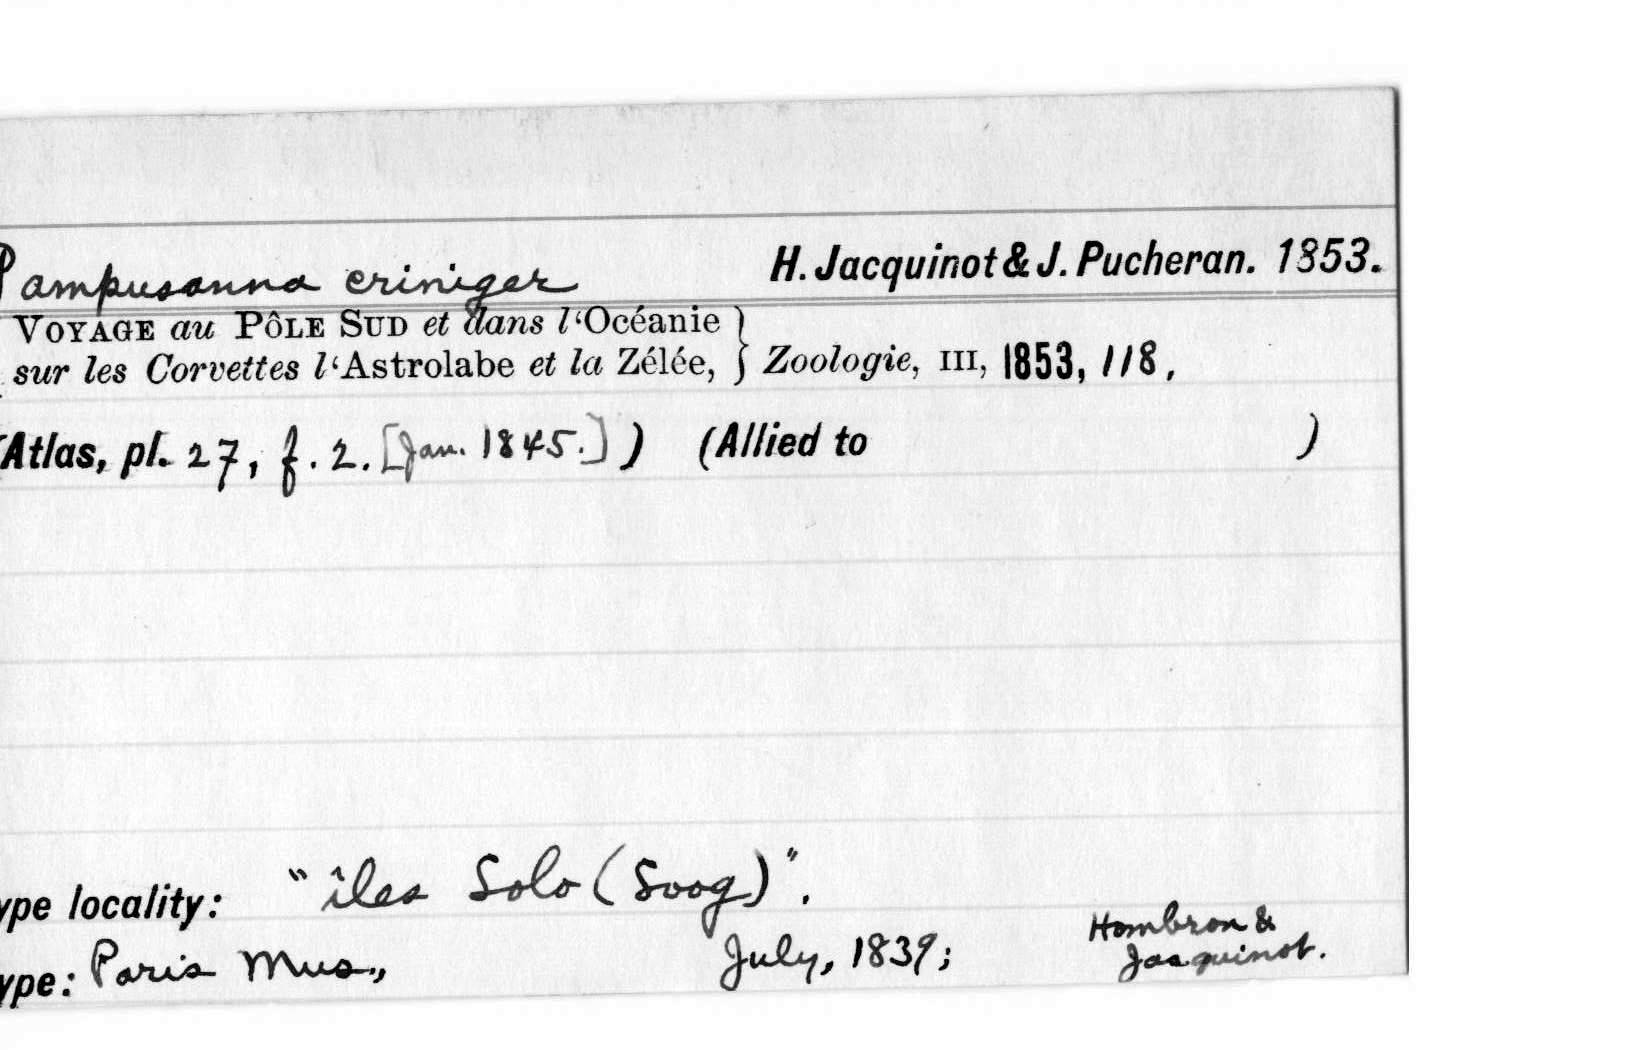 Pampusanna criniger H. Jacquinot & J. Pucheran. 1853.
VOYAGE au PÔLE SUD et dans l‘Océanie }
sur les Corvettes l‘Astrolabe et la Zélée, } Zoologie, III, 1853, 118,
(Atlas, pl. 27, f. 2. [Jan. 1845.] ) (Allied to )
ype locality: "îles Solo (Soog)".
ype: Paris Mus., July, 1839; Hombron &
Jacquinot.